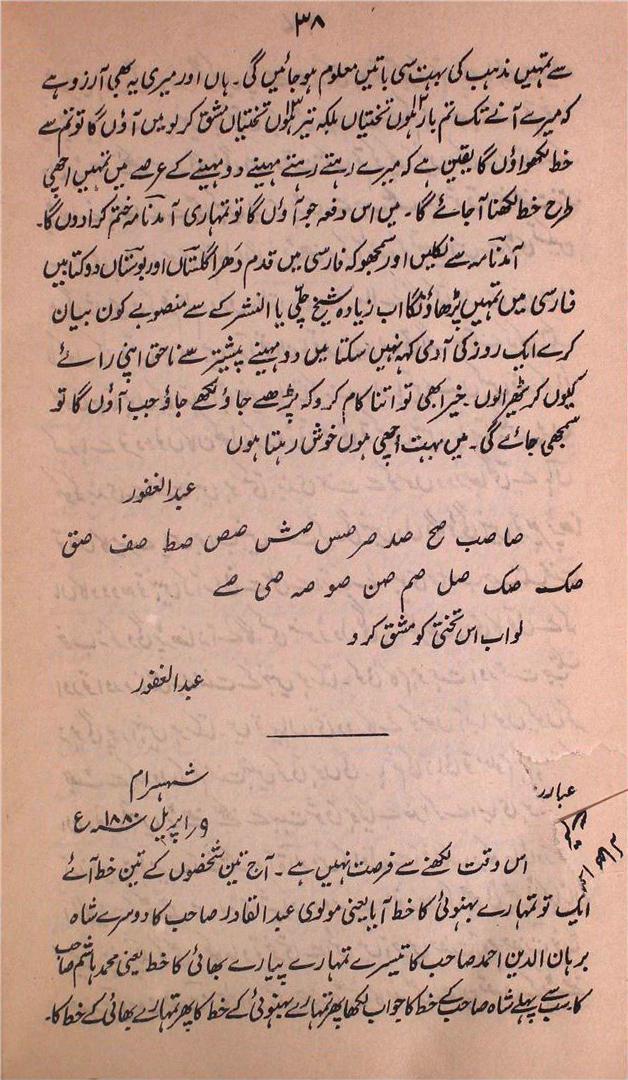 ۳۸
سے تمہیں مذہب کی بہت سی باتیں معلوم ہوجائیں گی۔ ہاں اور میری یہ بھی آرزو ہے
کہ میرے آنے تک تم بارہوں تختیاں بلکہ تیرہوں تختیاں مشق کر لو میں آؤں گا تو تم سے
خط لکھواؤں گا یقین ہے کہ میرے رہتے رہتے مہینے دو مہینے کے عرصے میں تمہیں اچھی
طرح خط لکھنا آجائے گا۔ میں اس دفعہ جو آؤں گا تو تمہاری آمدنامہ ختم کرادوں گا۔
آمدنامہ سے نکلیں اور سمجھو کہ فارسی میں قدم دھرا گلستاں اور بوستاں دو کتابیں
فارسی میں تمہیں پڑھاؤنگا اب زیادہ شیخ چلّی یا النشر کے سے منصوبے کون بیان
کرے ایک روز کی آدمی کہہ نہیں سکتا میں دو مہینے پیشتر سے ناحق اپنی رائے
کیوں کر ٹھہرالوں۔ خیر ابھی تو اتنا کام کرو کہ پڑھے جاؤ لکھے جاؤ جب آؤں گا تو
سمجھی جائے گی۔ میں بہت اچھی ہوں خوش رہتا ہوں
عبدالغفور
صا صب صح صد صر صس صش صص صط صف صق
صک صک صل صم صن صو صہ صی صے
لو اب اس تختی کو مشق کرو
عبدالغفور
شہسرام
عبادر
۹ راپریل ۱۸۸۰ء
اس وقت لکھنے سے فرصت نہیں ہے۔ آج تین شخصوں کے تین خط آئے
ایک تو تمہارے بہنوئی کا خط آیا یعنی مولوی عبدالقادر صاحب کا دوسرے شاہ
برہان الدین احمد صاحب کا تیسرے تمہارے پیارے بھائی کا خط یعنی محمد ہاشم صاحب
کا۔ سب سے پہلے شاہ صاحب کے خط کا جواب لکھا پھر تمہارے بہنوئی کے خط کا پھر تمہارے بھائی کے خط کا۔